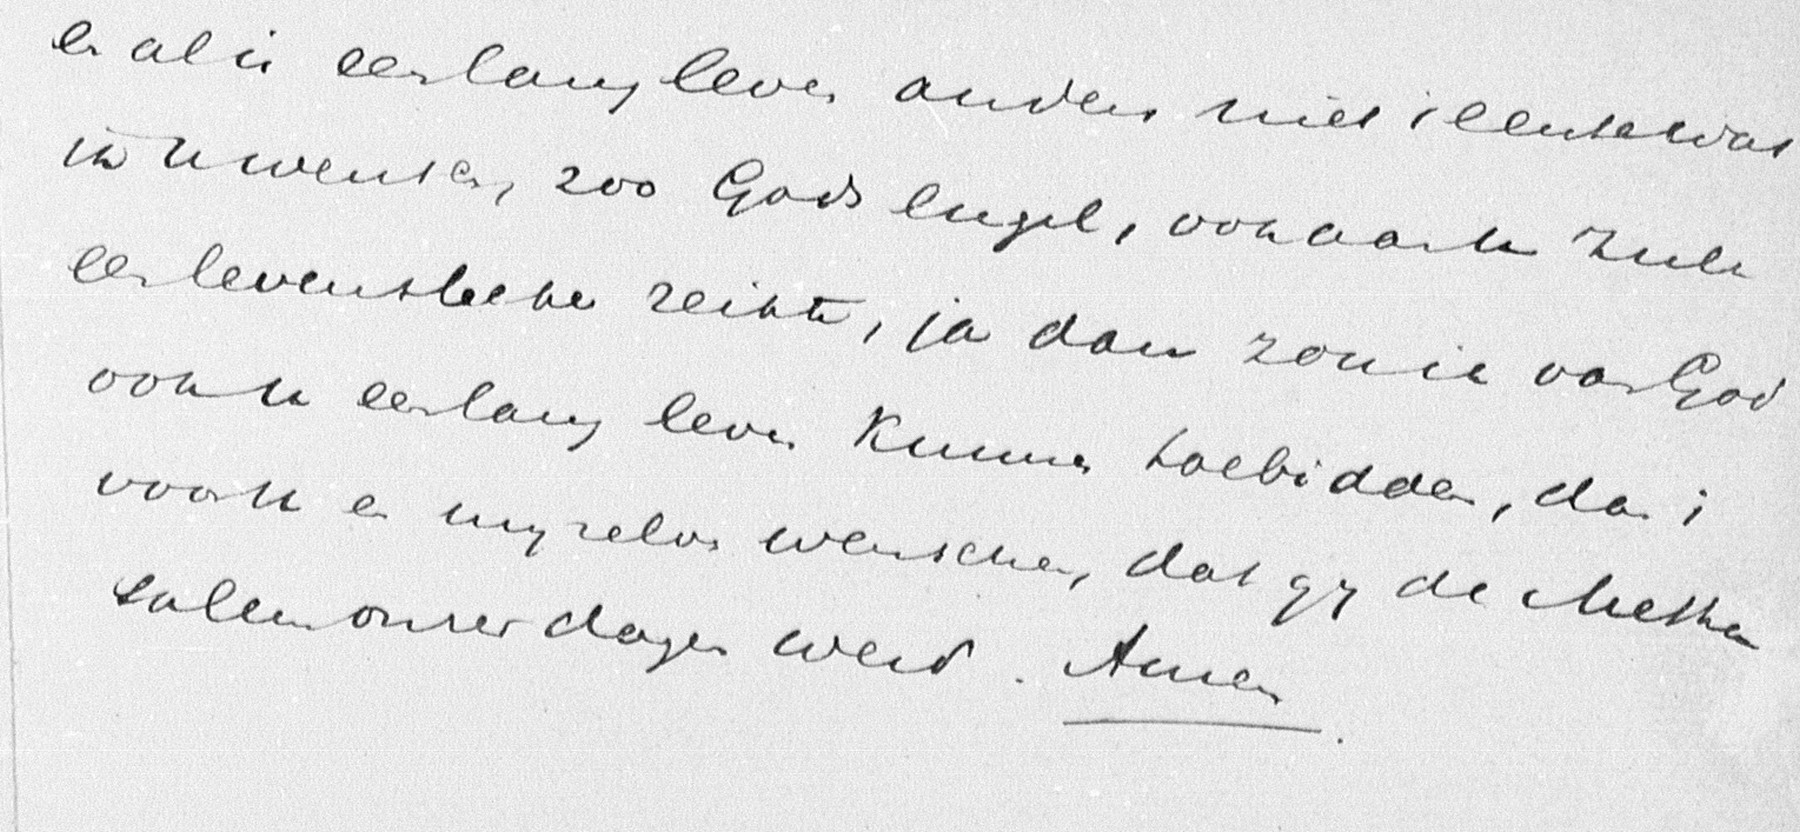 en al is een lang leven anders niet ellende wat
ik U wensch, zoo Gods engel, ook aan U zulk
een levensbeker reikte, ja dan zou ik van God
ook U een lang leven kunnen toebidden, dan
voor U en myzelven wenschen, dat gy de Methu
salem onzer dagen werd. Amen.